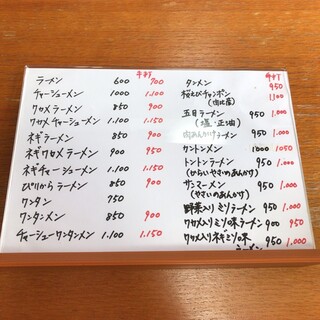 半チャ
ラーメン 600 700
チャーシューメン 1.000 1.100
ワカメラーメン 850 900
ワカメチャーシューメン 1.100 1.150
ネギラーメン 850 900
ネギワカメラーメン 900 950
ネギチャーシューメン 1.100 1.150
ぴりからラーメン 850 900
ワンタン 750
ワンタンメン 850 900
チャーシューワンタンメン 1.100 1.150
タンメン 950
桜えびチャンポン 1.100
五目ラーメン 950 1.000
(塩・正油)
肉あんかけラーメン 950 1.000
カントンメン 1000 1050
トントンラーメン 950 1.000
(からいやさいのあんかけ)
サンマーメン 950 1.000
(やさいのあんかけ)
野菜入りミソラーメン 950 1.000
ワカメ入りミソ味ラーメン 900 950
ワカメ入りネギミソ味 950 1.000
ラーメン